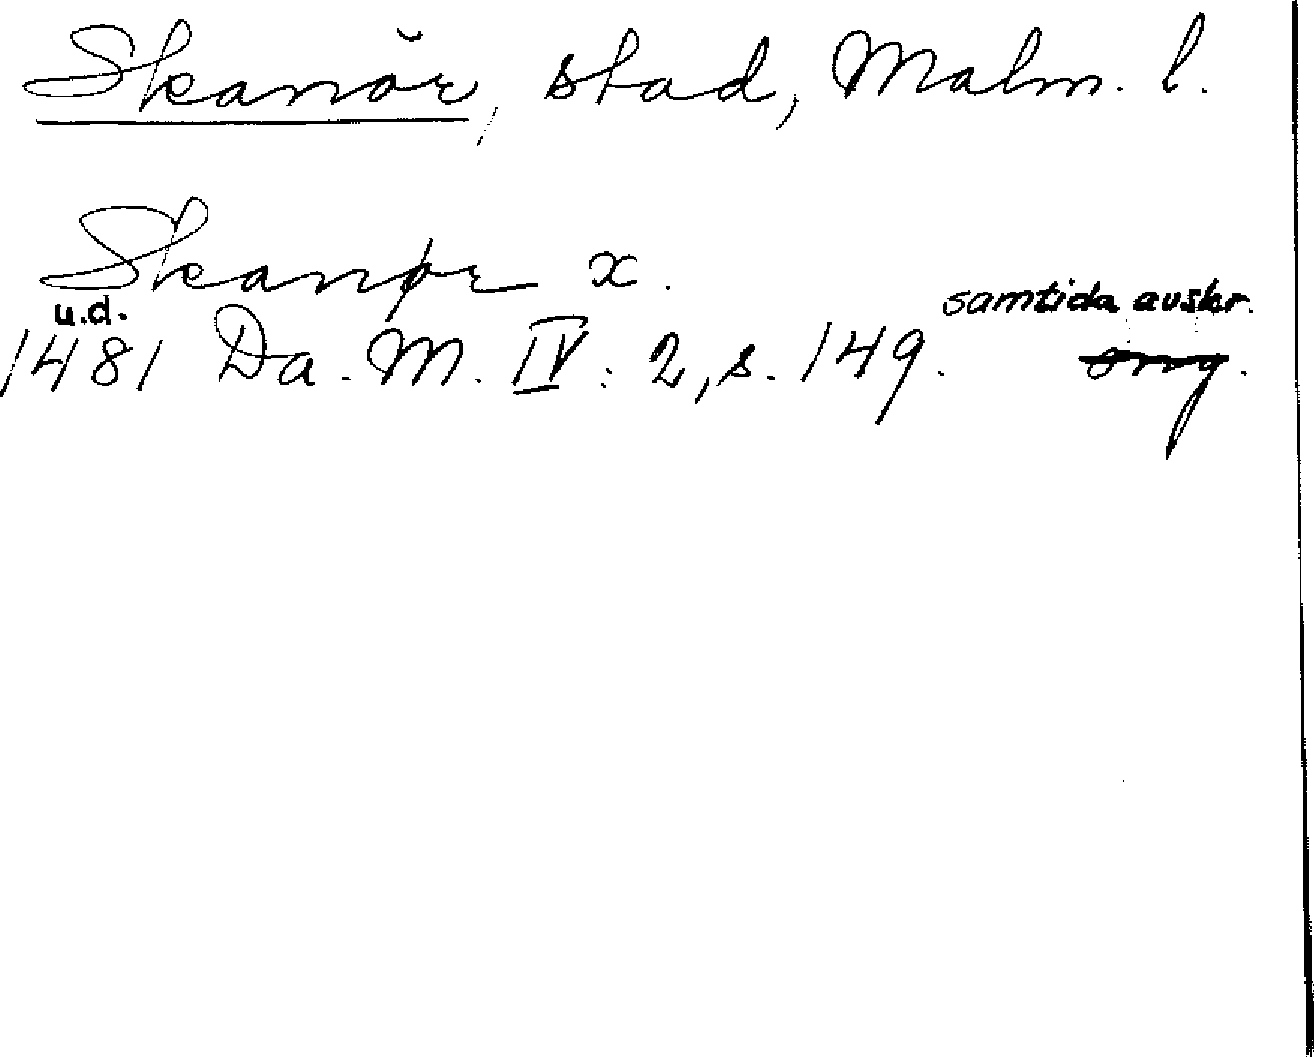 Skanör, stad, Malm. l.
Skanør x.
u.d. samtida avskr.
1481 Da. M. IV: 2, s. 149. orig.